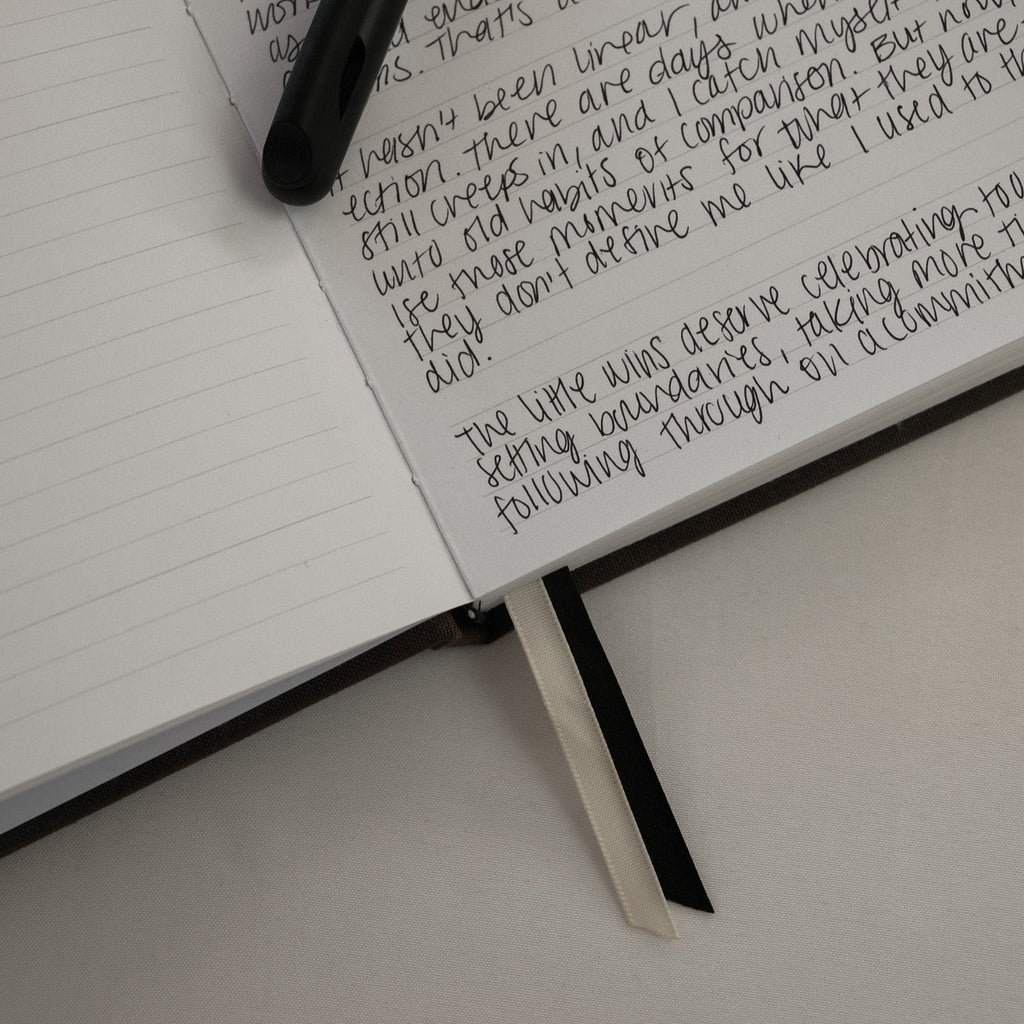 work
as
ns. That's
it hasn't been linear, an
ection. There are days when
still creeps in, and I catch myself
unto old habits of comparison. But now
ise those moments for what they are
they don't define me like I used to th
did.
The little wins deserve celebrating too
setting boundaries, taking more ti
following through on a commitme